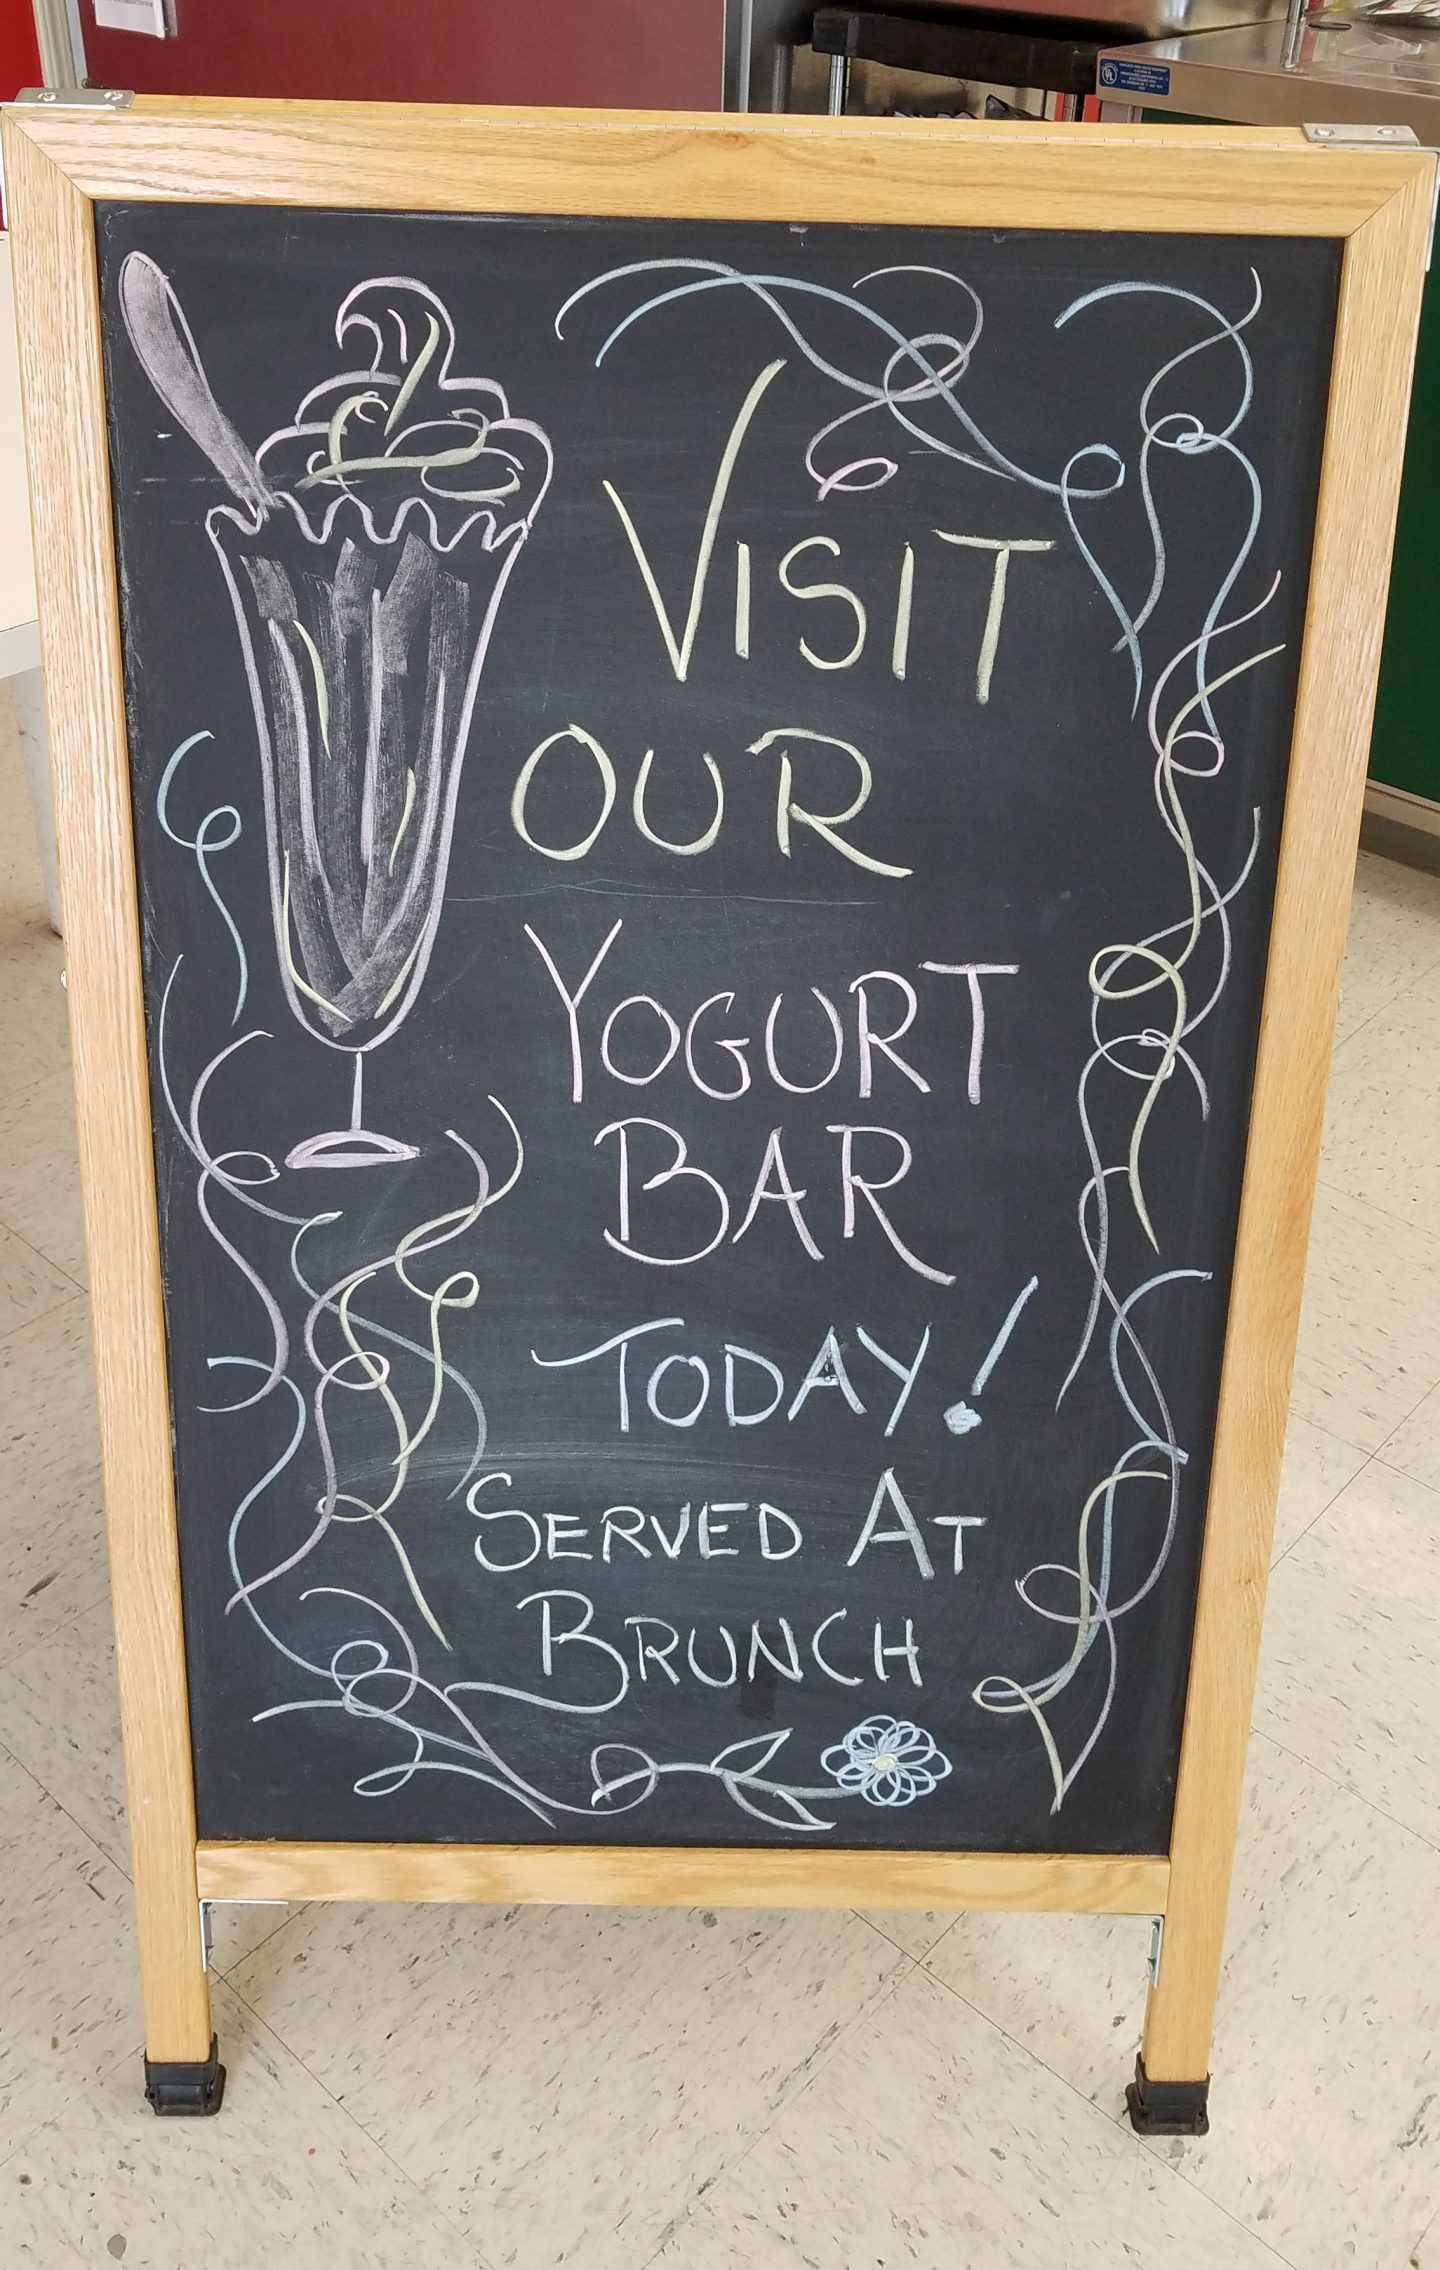 VISIT
OUR
YOGURT
BAR
TODAY!
SERVED AT
BRUNCH